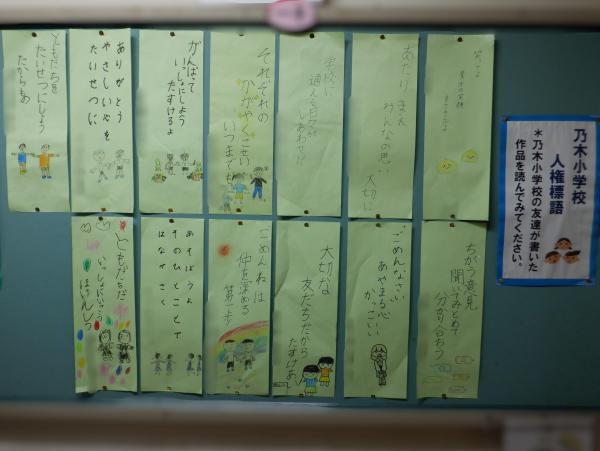 乃木小学校
人権標語
*乃木小学校の友達が書いた
作品を読んでみてください。
あたりまえ
みんなの思い
大切に
学校に
通える日々が
しあわせ
それぞれの
かがやくこせい
いつまでも
がんばって
いっしょにしよう
たすけるよ
ありがとう
やさしい心を
たいせつに
ともだちを
たいせつにしよう
たからもの
ちがう意見
聞いてみとめて
分かり合おう
ごめんなさい
あやまる心
かっこいい
大切な
友だちだから
たすけあい
ごめんねは
仲を深める
第一歩
あそぼうよ
そのひとことで
はながさく
ともだちだ
いっしょにいこう
ほいんしつ